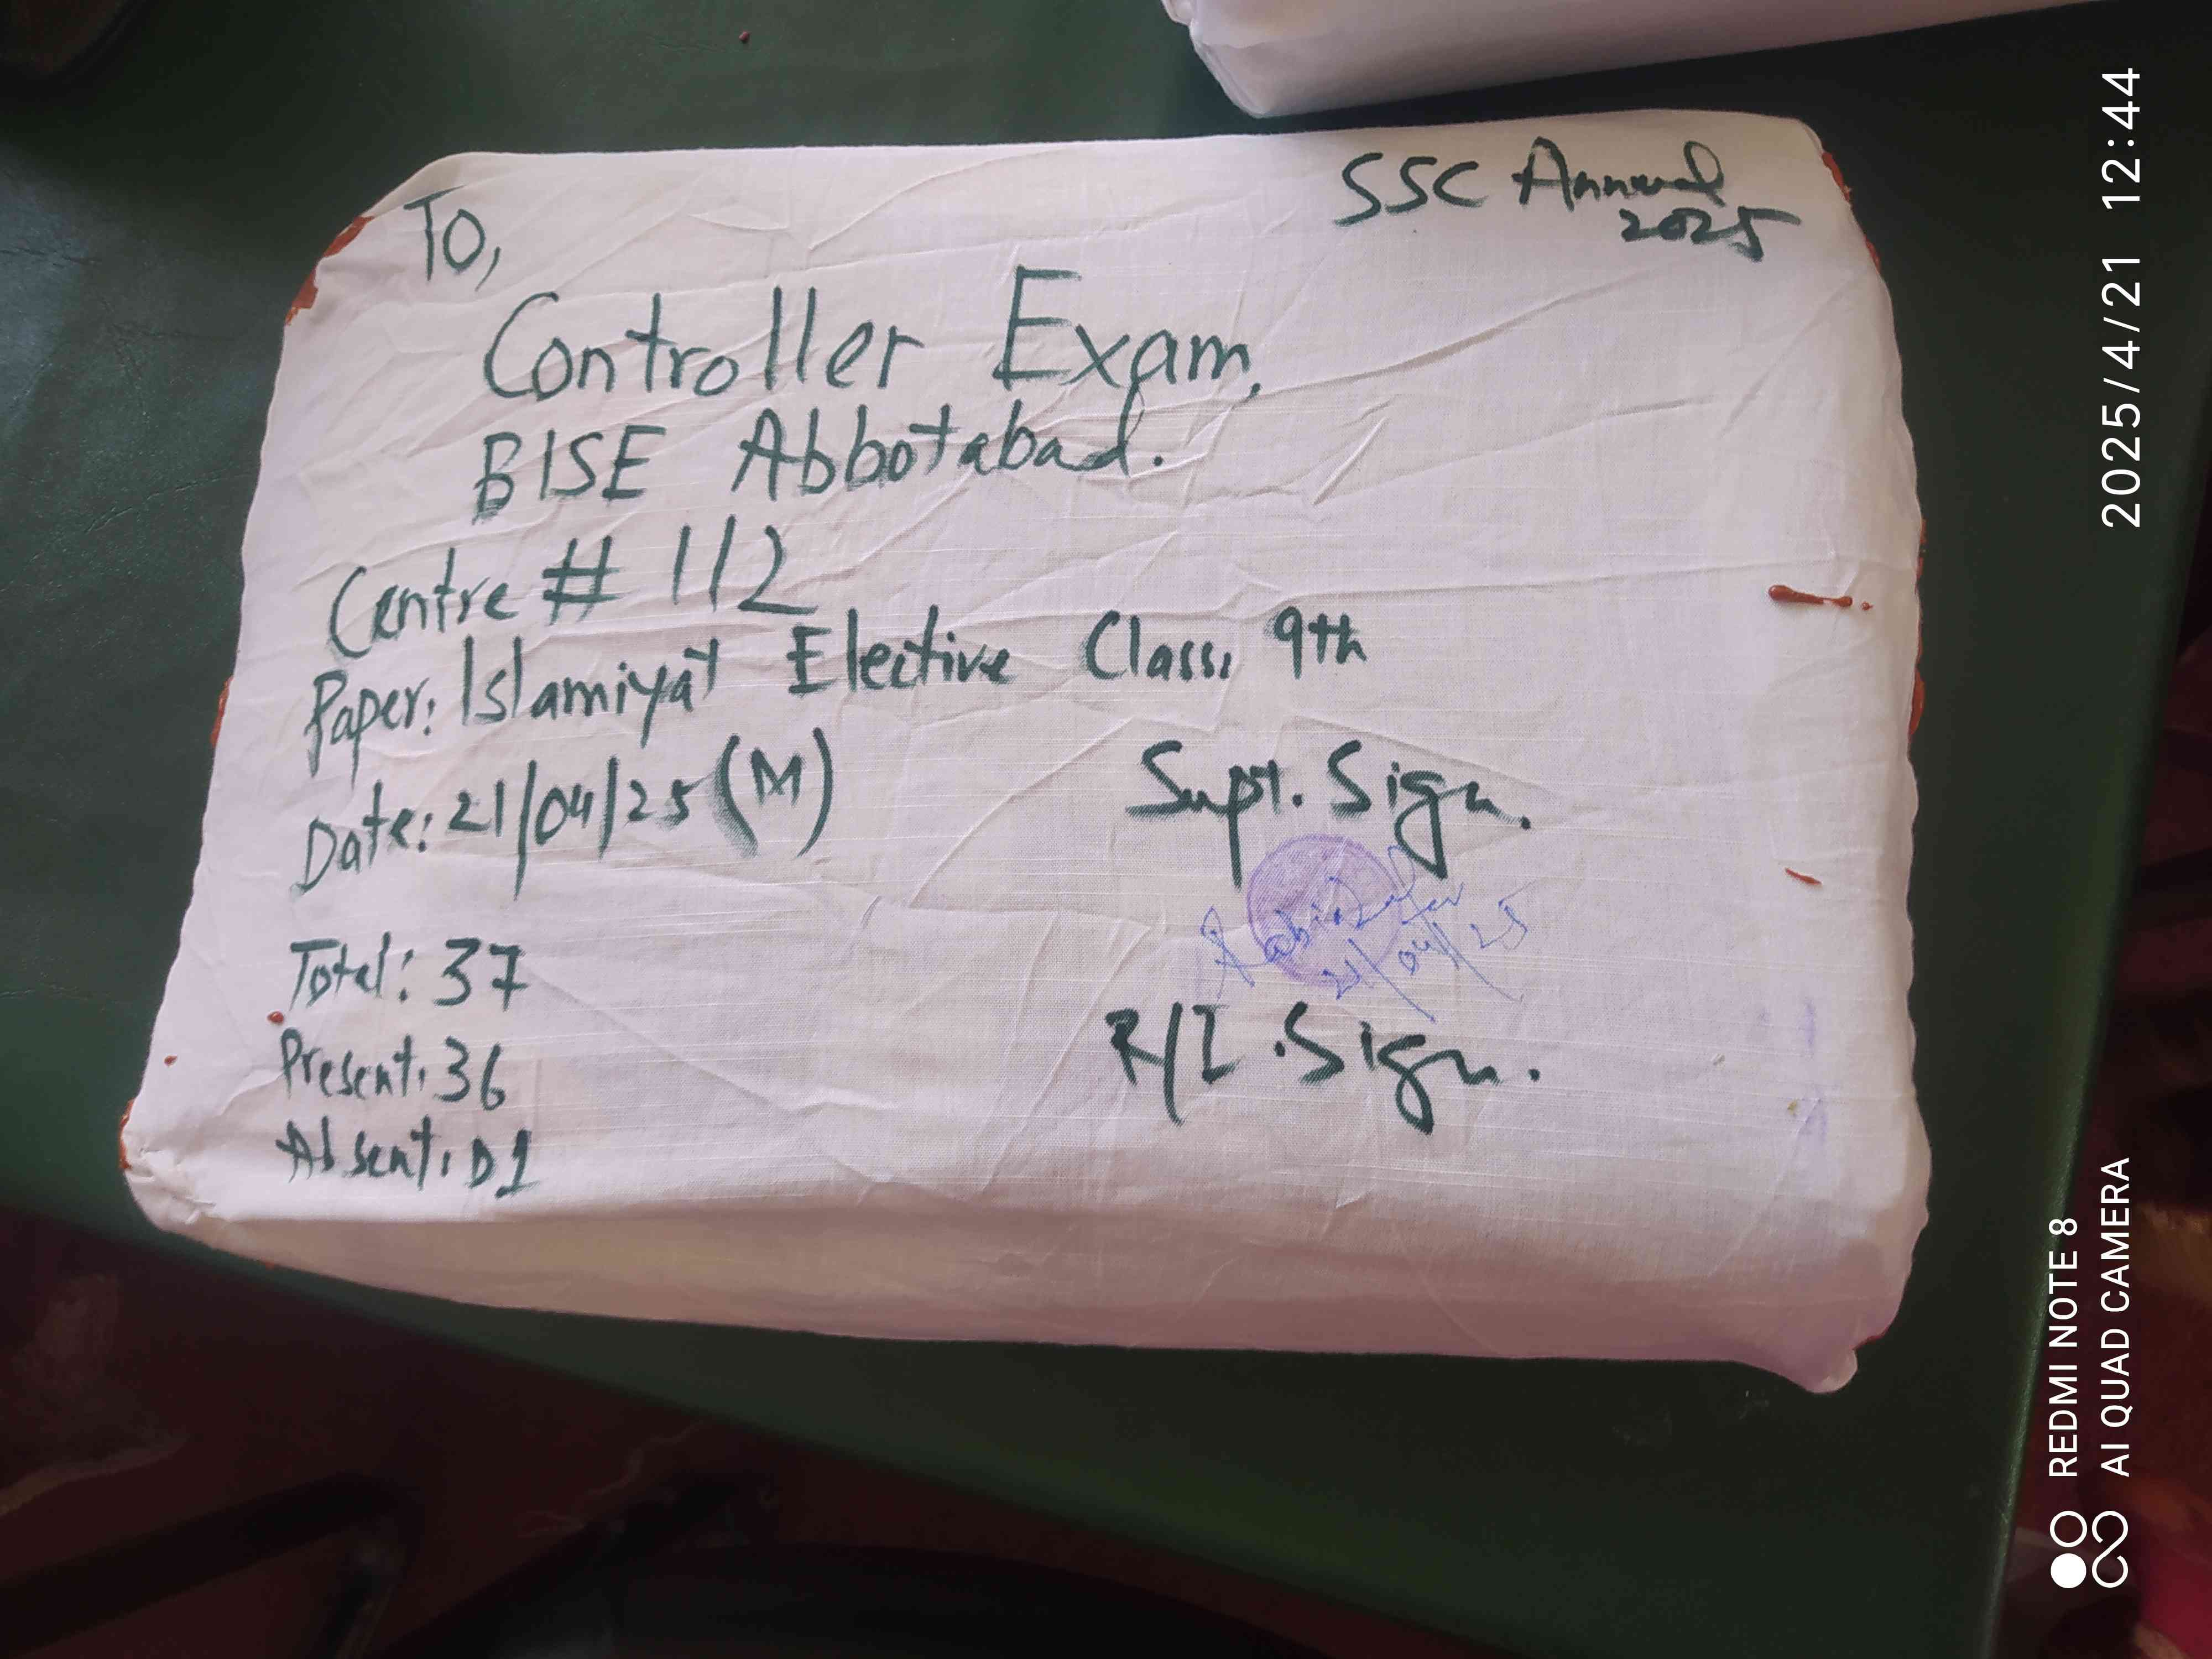 SSC Annual
2025
To,
Controller Exam,
BISE Abbotabad.
Centre # 112
Paper: Islamiyat Elective Class: 9th
Date: 21/04/25 (M)
Supt. Sign.
21/04/25
Total: 37
Present: 36
Absent: 01
R/I. Sign.
2025/4/21 12:44
REDMI NOTE 8
AI QUAD CAMERA